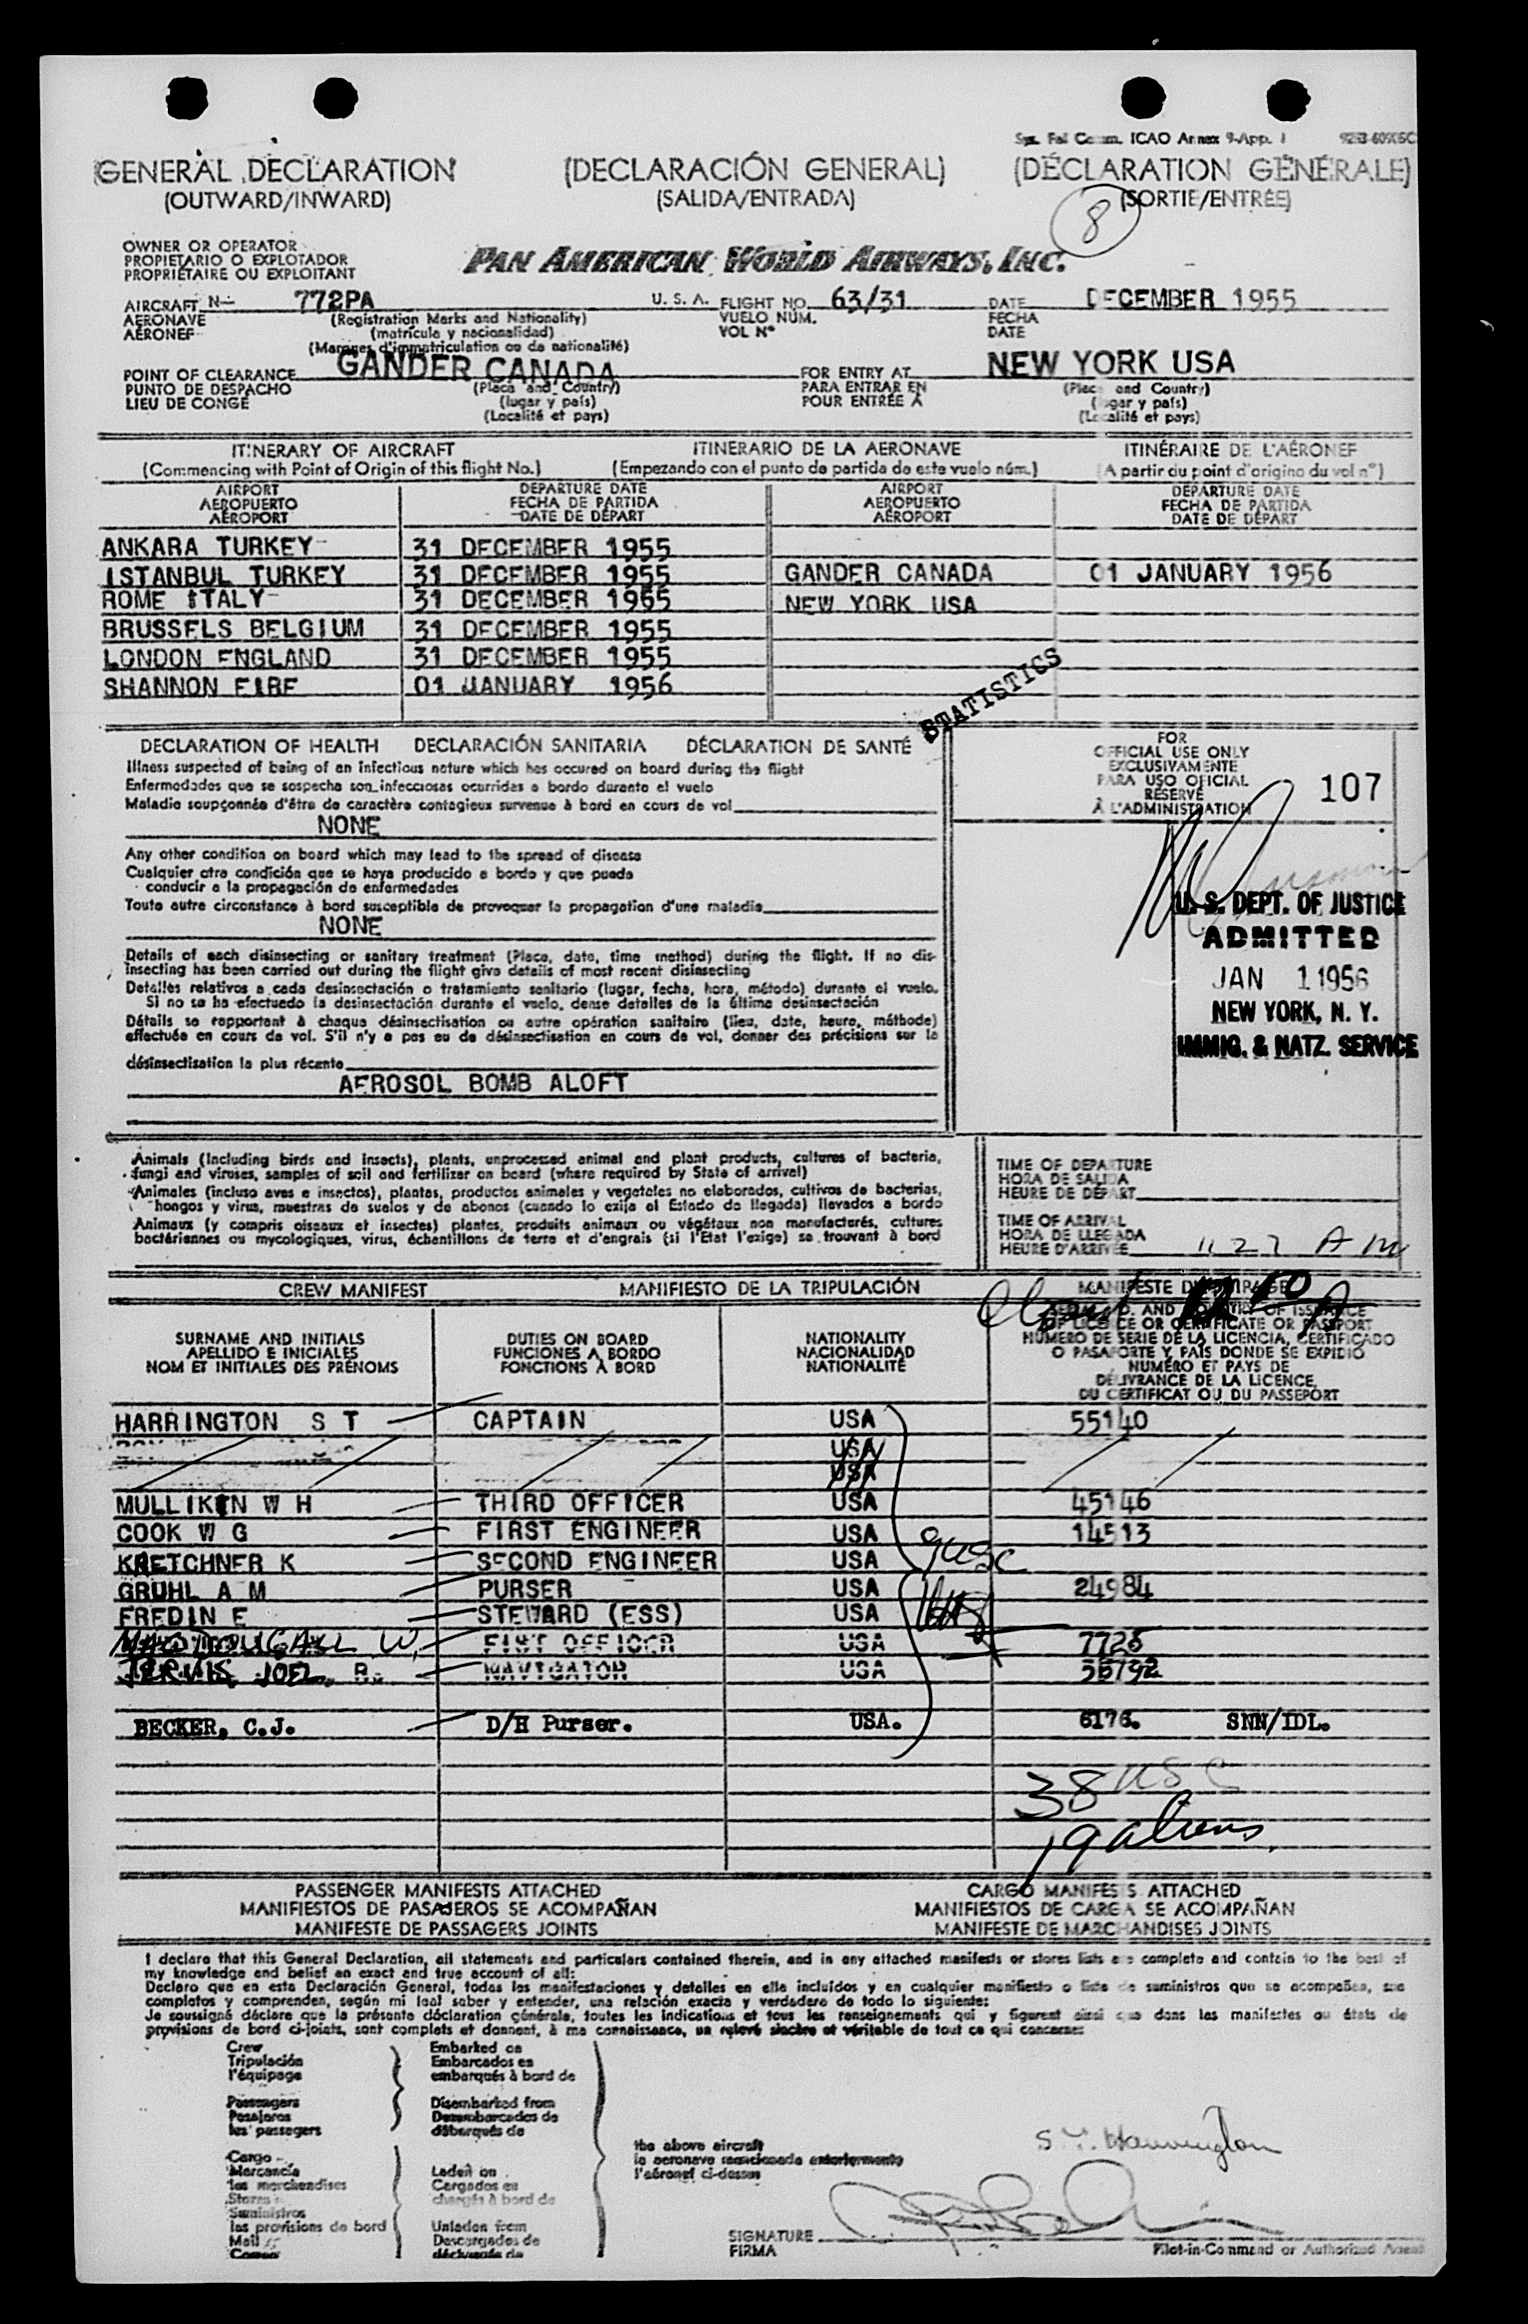 ICAO Annex 9-App. 1
GENERAL DECLARATION (DECLARACIÓN GENERAL) (DÉCLARATION GÉNÉRALE)
(OUTWARD/INWARD) (SALIDA/ENTRADA) (SORTIE/ENTRÉE)
8
OWNER OR OPERATOR
PROPIETARIO O EXPLOTADOR
PROPRIÉTAIRE OU EXPLOITANT
PAN AMERICAN WORLD AIRWAYS, INC.
AIRCRAFT N- 772PA U. S. A. FLIGHT NO. 63/31 DATE DECEMBER 1955
AERONAVE (Registration Marks and Nationality) VUELO NÚM. FECHA
AÉRONEF (matrícula y nacionalidad) VOL N° DATE
(Marques d'immatriculation ou de nationalité)
POINT OF CLEARANCE GANDER CANADA FOR ENTRY AT NEW YORK USA
PUNTO DE DESPACHO (Place and Country) PARA ENTRAR EN (Place and Country)
LIEU DE CONGÉ (lugar y país) POUR ENTRÉE À (lugar y país)
(Localité et pays) (Localité et pays)
ITINERARY OF AIRCRAFT ITINERARIO DE LA AERONAVE ITINÉRAIRE DE L'AÉRONEF
(Commencing with Point of Origin of this flight No.) (Empezando con el punto de partida de este vuelo núm.) (A partir du point d'origine du vol n°)
AIRPORT DEPARTURE DATE AIRPORT DEPARTURE DATE
AEROPUERTO FECHA DE PARTIDA AEROPUERTO FECHA DE PARTIDA
AÉROPORT DATE DE DÉPART AÉROPORT DATE DE DÉPART
ANKARA TURKEY 31 DECEMBER 1955
ISTANBUL TURKEY 31 DECEMBER 1955 GANDER CANADA 01 JANUARY 1956
ROME ITALY 31 DECEMBER 1955 NEW YORK USA
BRUSSELS BELGIUM 31 DECEMBER 1955
LONDON ENGLAND 31 DECEMBER 1955
SHANNON EIRE 01 JANUARY 1956
STATISTICS
DECLARATION OF HEALTH DECLARACIÓN SANITARIA DÉCLARATION DE SANTÉ
Illness suspected of being of an infectious nature which has occured on board during the flight
Enfermedades que se sospecha son infecciosas ocurridas a bordo durante el vuelo
Maladie soupçonnée d'être de caractère contagieux survenue à bord en cours de vol
NONE
Any other condition on board which may lead to the spread of disease
Cualquier otra condición que se haya producido a bordo y que pueda
conducir a la propagación de enfermedades
Toute autre circonstance à bord susceptible de provoquer la propagation d'une maladie
NONE
Details of each disinsecting or sanitary treatment (Place, date, time method) during the flight. If no dis-
insecting has been carried out during the flight give details of most recent disinsecting
Detalles relativos a cada desinsectación o tratamiento sanitario (lugar, fecha, hora, método) durante el vuelo.
Si no se ha efectuado la desinsectación durante el vuelo, dense detalles de la última desinsectación
Détails se rapportant à chaque désinsectisation ou autre opération sanitaire (lieu, date, heure, méthode)
effectuée en cours de vol. S'il n'y a pas eu de désinsectisation en cours de vol, donner des précisions sur la
désinsectisation la plus récente
AEROSOL BOMB ALOFT
FOR
OFFICIAL USE ONLY
EXCLUSIVAMENTE
PARA USO OFICIAL
RÉSERVÉ
À L'ADMINISTRATION
107
U. S. DEPT. OF JUSTICE
ADMITTED
JAN 1 1956
NEW YORK, N. Y.
IMMIG. & NATZ. SERVICE
Animals (including birds and insects), plants, unprocessed animal and plant products, cultures of bacteria,
fungi and viruses, samples of soil and fertilizer on board (where required by State of arrival)
Animales (incluso aves e insectos), plantas, productos animales y vegetales no elaborados, cultivos de bacterias,
hongos y virus, muestras de suelos y de abonos (cuando lo exija el Estado de llegada) llevados a bordo
Animaux (y compris oiseaux et insectes) plantes, produits animaux ou végétaux non manufacturés, cultures
bactériennes ou mycologiques, virus, échantillons de terre et d'engrais (si l'État l'exige) se trouvant à bord
TIME OF DEPARTURE
HORA DE SALIDA
HEURE DE DÉPART
TIME OF ARRIVAL
HORA DE LLEGADA
HEURE D'ARRIVÉE 1127 AM
CREW MANIFEST MANIFIESTO DE LA TRIPULACIÓN MANIFESTE D'ÉQUIPAGE
SURNAME AND INITIALS DUTIES ON BOARD NATIONALITY
APELLIDO E INICIALES FUNCIONES A BORDO NACIONALIDAD
NOM ET INITIALES DES PRÉNOMS FONCTIONS À BORD NATIONALITÉ
SERIAL NO. AND COUNTRY OF ISSUANCE
OF LICENCE OR CERTIFICATE OR PASSPORT
NÚMERO DE SERIE DE LA LICENCIA, CERTIFICADO
O PASAPORTE Y PAÍS DONDE SE EXPIDIÓ
NUMÉRO ET PAYS DE
DÉLIVRANCE DE LA LICENCE,
DU CERTIFICAT OU DU PASSEPORT
HARRINGTON S T CAPTAIN USA 55140
USA
USA
MULLIKEN W H THIRD OFFICER USA 45146
COOK W G FIRST ENGINEER USA 14513
KRETCHNER K SECOND ENGINEER USA
9 USC
GRUHL A M PURSER USA 24984
FREDIN E STEWARD (ESS) USA
MACDOUGALL W. FIRST OFFICER USA 7725
JERVIS, JOEL R. NAVIGATOR USA 55792
BECKER, C.J. D/H Purser. USA. 6176. SNN/IDL.
38 USC
19 aliens.
PASSENGER MANIFESTS ATTACHED CARGO MANIFESTS ATTACHED
MANIFIESTOS DE PASAJEROS SE ACOMPAÑAN MANIFIESTOS DE CARGA SE ACOMPAÑAN
MANIFESTE DE PASSAGERS JOINTS MANIFESTE DE MARCHANDISES JOINTS
I declare that this General Declaration, all statements and particulars contained therein, and in any attached manifests or stores lists are complete and contain to the best of
my knowledge and belief an exact and true account of all:
Declaro que en esta Declaración General, todas las manifestaciones y detalles en ella incluídos y en cualquier manifiesto o lista de suministros que se acompañen, son
completos y comprenden, según mi leal saber y entender, una relación exacta y verdadera de todo lo siguiente:
Je soussigné déclare que la présente déclaration générale, toutes les indications et tous les renseignements qui y figurent ainsi que dans les manifestes ou états de
provisions de bord ci-joints, sont complets et donnent, à ma connaissance, un relevé sincère et véritable de tout ce qui concerne:
Crew Embarked on
Tripulación Embarcados en
l'équipage embarqués à bord de
Passengers Disembarked from
Pasajeros Desembarcados de
les passagers débarqués de
the above aircraft
la aeronave mencionada anteriormente
l'aéronef ci-dessus
Cargo
Mercancía Laden on
les marchandises Cargados en
Stores chargés à bord de
Suministros
les provisions de bord Unladen from
Mail Descargados de
Correo déchargés de
S. T. Harrington
SIGNATURE
FIRMA Pilot-in-Command or Authorized Agent